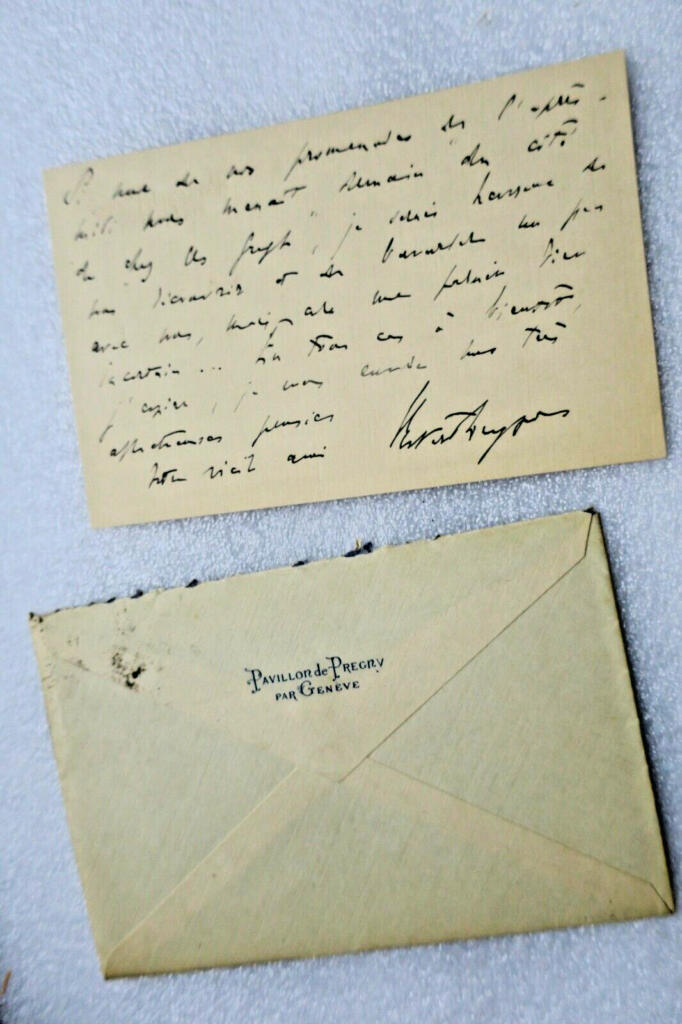 Si une de vos promenades de l'après-
midi vous menait demain du côté
de chez les je serais heureux de
vous et de bavarder un peu
avec vous, mais cela me paraît bien
incertain... En tous cas à bientôt,
j'espère, je vous envoie mes très
affectueuses pensées
Votre vieil ami
PAVILLON de PREGNY
PAR GENÈVE